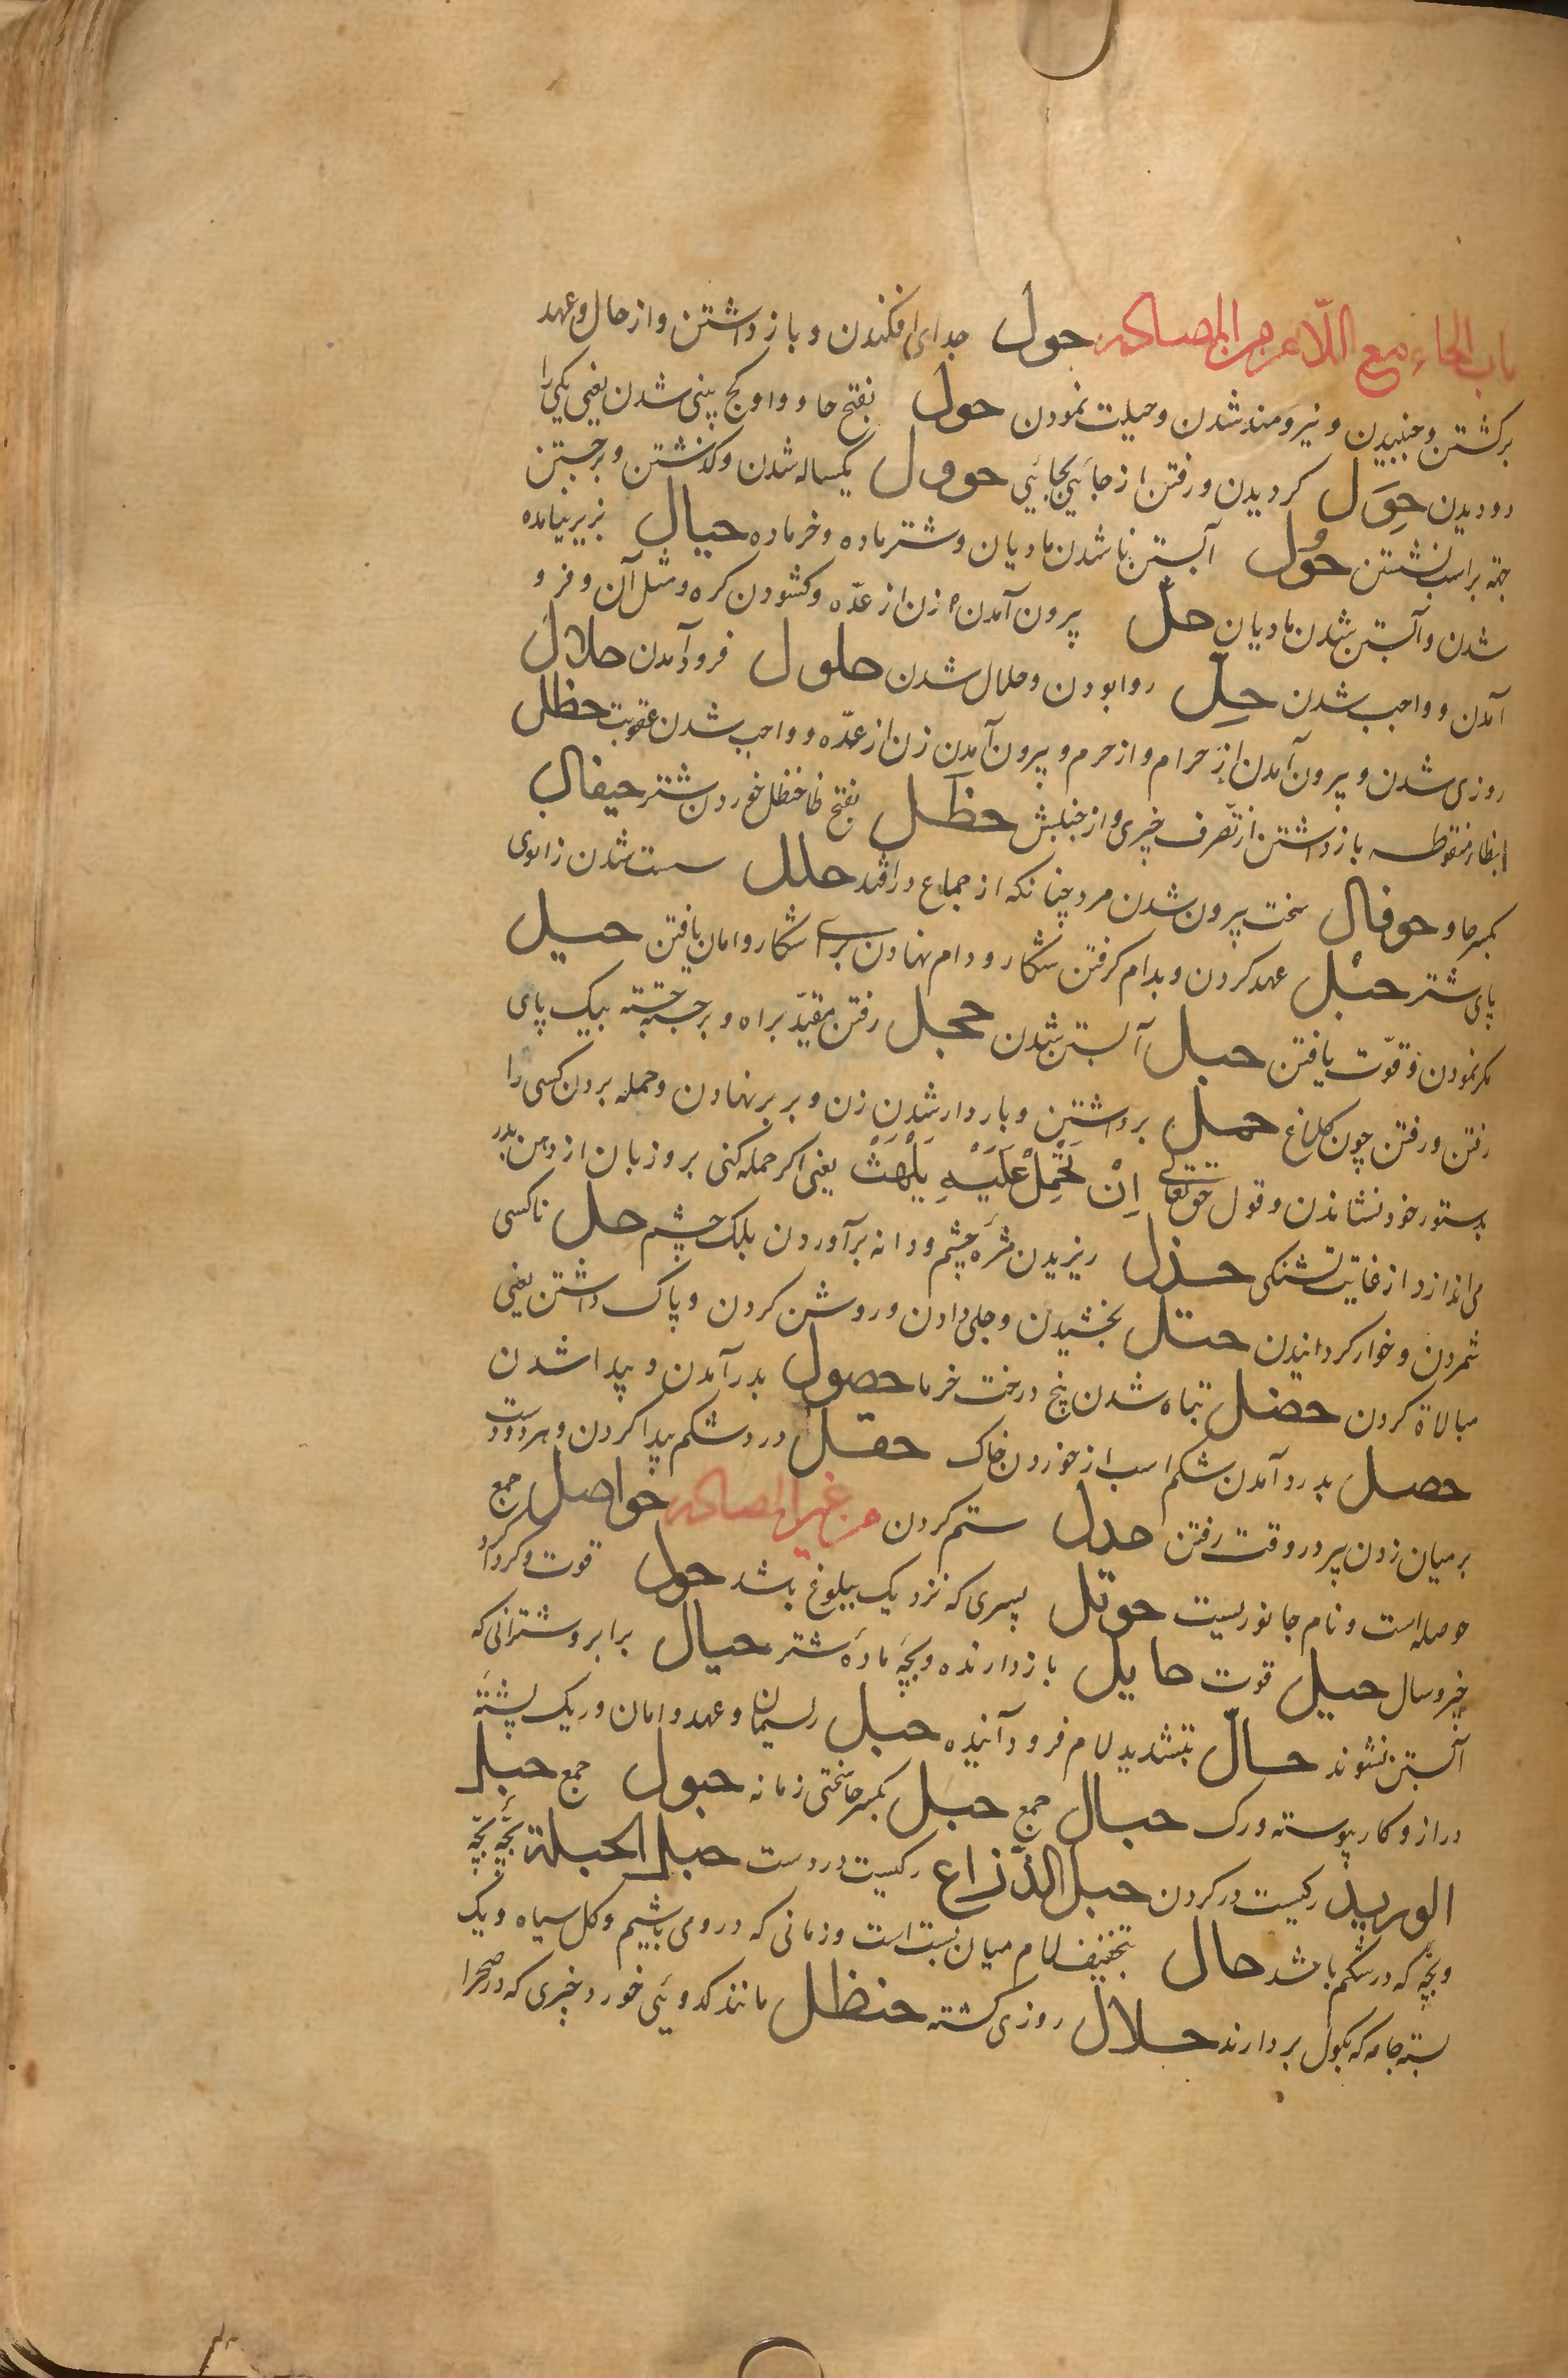 باب الحاء مع اللام من المصادر حول جدای افکندن و باز داشتن و از حال و عهد
برکشتن و جنبیدن و نیرومند شدن و حیلت نمودن حول بفتح حا و واو کج بینی شدن یعنی یکی را
دو دیدن حِوَل کردیدن و رفتن از جائی بجائی حوول یکساله شدن و کذشتن و برجستن
جته بر اسب نشستن حُول آبستن نا شدن مادیان و شتر ماده و خر ماده حیال نر نیامده
شدن و آبستن شدن مادیان حلّ بیرون آمدن زن از عدّه و کشودن کره و مثل آن و فرو
آمدن و واجب شدن حِلّ روا بودن و حلال شدن حلول فرود آمدن حلال
روزی شدن و بیرون آمدن از حرام و از حرم و بیرون آمدن زن از عدّه و واجب شدن عقوبت حظل
بظاء منقوطه باز داشتن از تصرف چیزی و از جنبش حظل بفتح ظا حنظل خوردن شتر حیفال
بکسر حا و حوفال سخت پیرون شدن مرد چنانکه از جماع درافتد حلل سست شدن زانوی
پای شتر حبْل عهد کردن و بدام کرفتن شکار و دام نهادن برای شکار و امان یافتن حیل
مکر نمودن و قوّت یافتن حبل آبستن شدن حجل رفتن مقیّد براه و برجسته جسته بیک پای
رفتن و رفتن چون کلاغ حمل برداشتن و باردار شدن زن و بر بر نهادن و حمله بردن کسی را
بدستور خود نشاندن و قول حق تعالی اِنْ تَحْمِلْ عَلَیْهِ یَلْهَثْ یعنی اکر حمله کنی برو زبان از دهن بدر
می اندازد از غایت تشنکی حذل ریزیدن مژه چشم و دانه برآوردن پلک چشم حل ناکسی
شمردن و خوار کردانیدن حتل بخشیدن و جلی دادن و روشن کردن و پاک داشتن یعنی
مبالاة کردن حضل تباه شدن بیخ درخت خرما حصول بدر آمدن و پیدا شدن
حصل بدرد آمدن شکم اسب از خوردن خاک حقل درد شکم پیدا کردن و هر دو دست
بر میان زدن پیر در وقت رفتن حدل ستم کردن من غیر المصادر حواصل جمع
حوصله است و نام جانوریست حوتل پسری که نزدیک ببلوغ باشد حول قوت و کرداد
چیز و سال حیل قوت حایل باز دارنده و بچه مادۀ شتر حیال برابر و شترانی که
آبستن نشوند حالّ بتشدید لام فرود آینده حبل ریسمان و عهد و امان و ریک پشته
دراز و کار پیوسته ورک حبال جمع حبل بکسر حا سختی زمانه حبول جمع حبل
الورید رکیست در کردن حبل الذّراع رکیست در دست حبل الحبلة بچّه بچّه
و بچّه که در شکم باشد حال بتخفیف لام میان پشت است و زمانی که درو می باشیم و کل سیاه و یک
بسته جامه که بکول بردارند حلال روزی کشته حنظل مانند کدوئی خورد چیزی که در صحرا